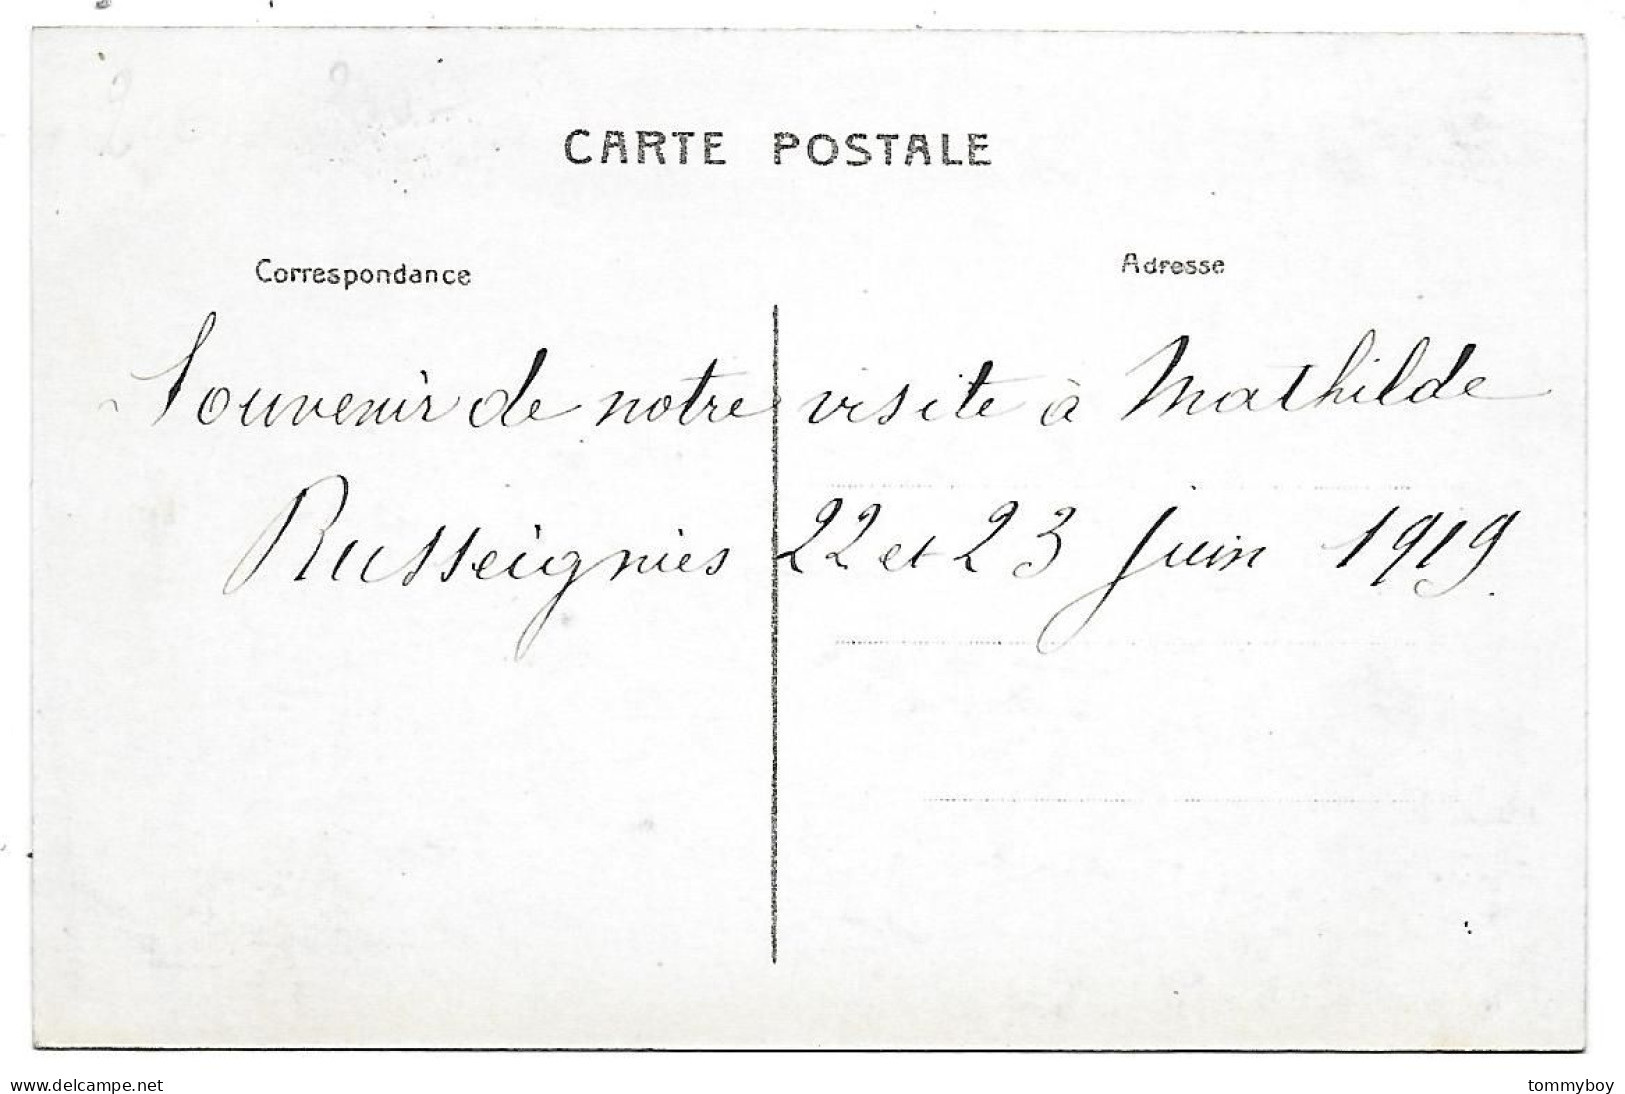 CARTE POSTALE
Correspondance
Adresse
Souvenir de notre visite à Mathilde
Russeignies 22 et 23 juin 1919.
www.delcampe.net
tommyboy